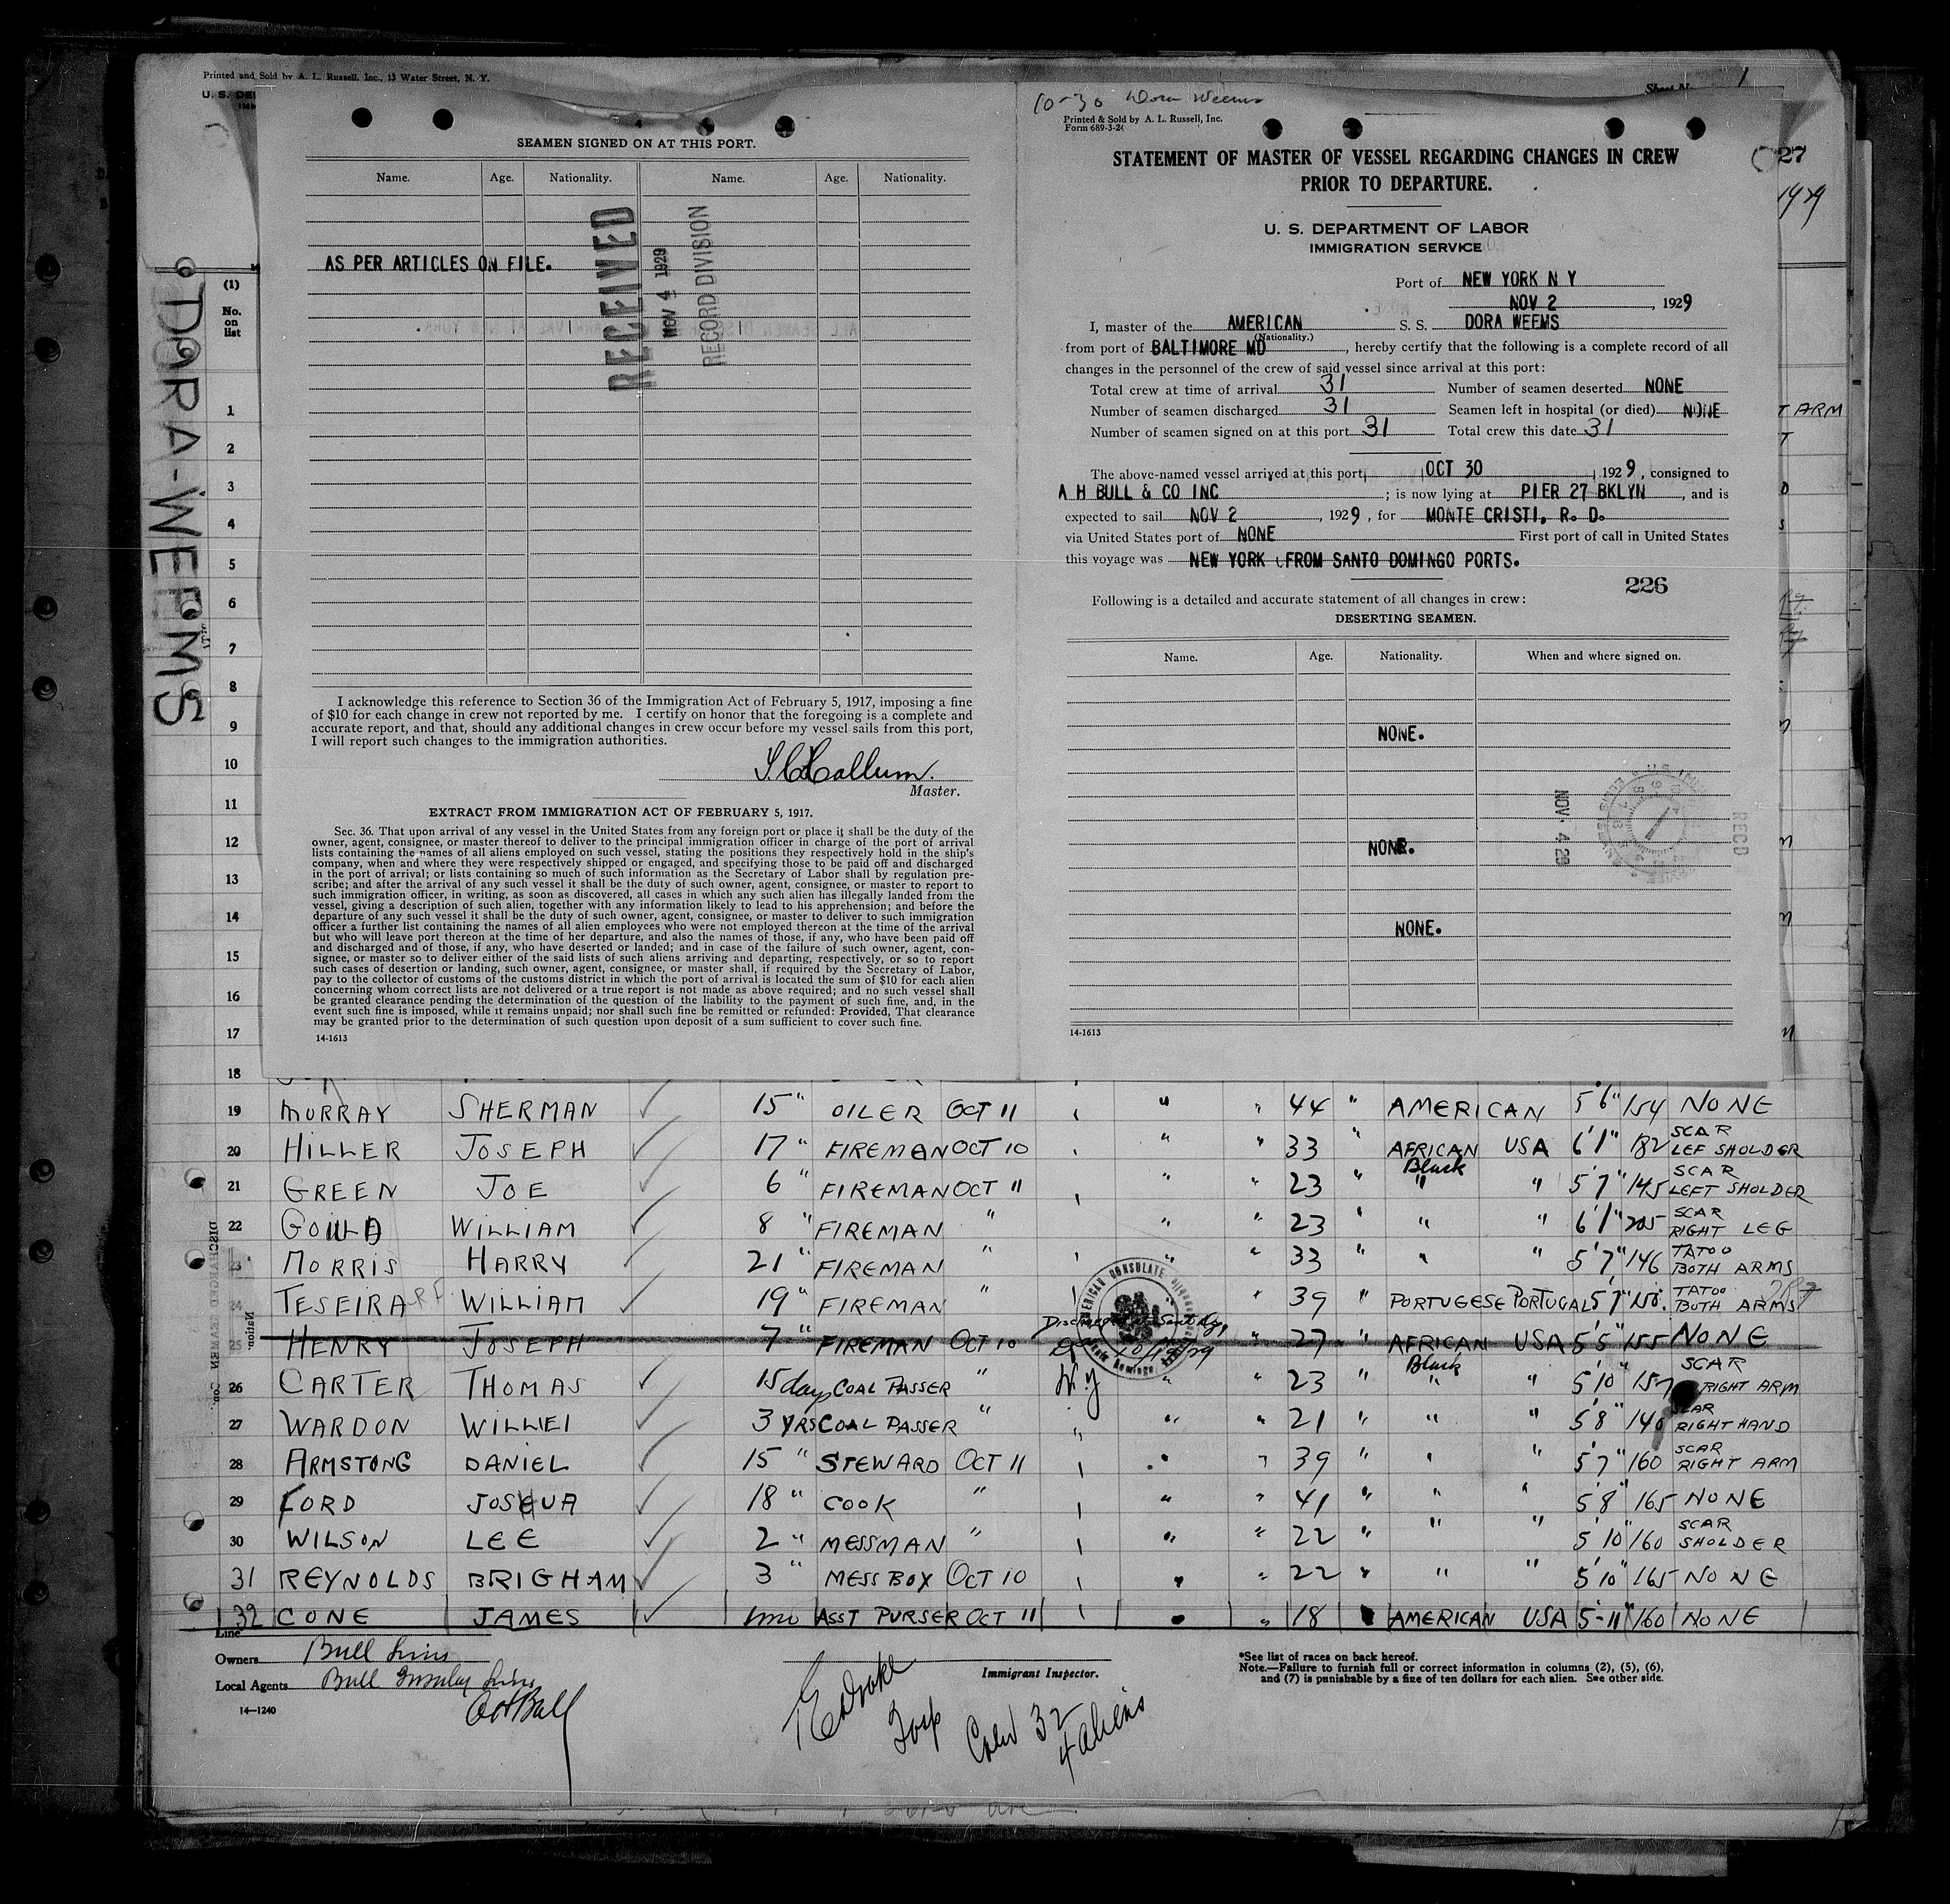 Printed and Sold by A. L. Russell, Inc., 13 Water Street, N. Y.
U. S. DE
Sheet No.
1
27
1929
DORA-WEEMS
(1)
No.
on
list
SEAMEN SIGNED ON AT THIS PORT.
Name. Age. Nationality. Name. Age. Nationality.
AS PER ARTICLES ON FILE.
RECEIVED
NOV 4 1929
RECORD DIVISION
I acknowledge this reference to Section 36 of the Immigration Act of February 5, 1917, imposing a fine
of $10 for each change in crew not reported by me. I certify on honor that the foregoing is a complete and
accurate report, and that, should any additional changes in crew occur before my vessel sails from this port,
I will report such changes to the immigration authorities.
Master.
EXTRACT FROM IMMIGRATION ACT OF FEBRUARY 5, 1917.
Sec. 36. That upon arrival of any vessel in the United States from any foreign port or place it shall be the duty of the
owner, agent, consignee, or master thereof to deliver to the principal immigration officer in charge of the port of arrival
lists containing the names of all aliens employed on such vessel, stating the positions they respectively hold in the ship's
company, when and where they were respectively shipped or engaged, and specifying those to be paid off and discharged
in the port of arrival; or lists containing so much of such information as the Secretary of Labor shall by regulation pre-
scribe; and after the arrival of any such vessel it shall be the duty of such owner, agent, consignee, or master to report to
such immigration officer, in writing, as soon as discovered, all cases in which any such alien has illegally landed from the
vessel, giving a description of such alien, together with any information likely to lead to his apprehension; and before the
departure of any such vessel it shall be the duty of such owner, agent, consignee, or master to deliver to such immigration
officer a further list containing the names of all alien employees who were not employed thereon at the time of the arrival
but who will leave port thereon at the time of her departure, and also the names of those, if any, who have been paid off
and discharged and of those, if any, who have deserted or landed; and in case of the failure of such owner, agent, con-
signee, or master so to deliver either of the said lists of such aliens arriving and departing, respectively, or so to report
such cases of desertion or landing, such owner, agent, consignee, or master shall, if required by the Secretary of Labor,
pay to the collector of customs of the customs district in which the port of arrival is located the sum of $10 for each alien
concerning whom correct lists are not delivered or a true report is not made as above required; and no such vessel shall
be granted clearance pending the determination of the question of the liability to the payment of such fine, and, in the
event such fine is imposed, while it remains unpaid; nor shall such fine be remitted or refunded: Provided, That clearance
may be granted prior to the determination of such question upon deposit of a sum sufficient to cover such fine.
14-1613
10-30 Dora Weems
Printed & Sold by A. L. Russell, Inc.
Form 689-3-2
STATEMENT OF MASTER OF VESSEL REGARDING CHANGES IN CREW
PRIOR TO DEPARTURE.
U. S. DEPARTMENT OF LABOR
IMMIGRATION SERVICE
Port of NEW YORK N Y
NOV 2, 1929
I, master of the AMERICAN S. S. DORA WEEMS
(Nationality.)
from port of BALTIMORE MD, hereby certify that the following is a complete record of all
changes in the personnel of the crew of said vessel since arrival at this port:
Total crew at time of arrival 31 Number of seamen deserted NONE
Number of seamen discharged 31 Seamen left in hospital (or died) NONE
Number of seamen signed on at this port 31 Total crew this date 31
The above-named vessel arrived at this port OCT 30, 1929, consigned to
A H BULL & CO INC; is now lying at PIER 27 BKLYN, and is
expected to sail NOV 2, 1929, for MONTE CRISTI, R. D.
via United States port of NONE First port of call in United States
this voyage was NEW YORK FROM SANTO DOMINGO PORTS.
226
Following is a detailed and accurate statement of all changes in crew:
DESERTING SEAMEN.
Name. Age. Nationality. When and where signed on.
NONE.
NONE.
NONE.
NOV. 4 29
RECD
14-1613
1
2
3
4
5
6
7
8
9
10
11
12
13
14
15
16
17
18
T ARM
19 MURRAY SHERMAN 15 " OILER OCT 11 " " 44 " AMERICAN 5'6" 154 NONE
20 HILLER JOSEPH 17 " FIREMAN OCT 10 " " 33 " AFRICAN USA 6'1" 182 SCAR LEF SHOLDER
Black
21 GREEN JOE 6 " FIREMAN OCT 11 " " 23 " " " 5'7" 145 SCAR LEFT SHOLDER
22 GOULD WILLIAM 8 " FIREMAN " " " 23 " " " 6'1" 205 SCAR RIGHT LEG
23 MORRIS HARRY 21 " FIREMAN " " " 33 " " " 5'7" 146 TATOO BOTH ARMS
24 TESEIRA WILLIAM 19 " FIREMAN " " " 39 " PORTUGESE PORTUGAL 5'7" 150 TATOO BOTH ARMS
25 HENRY JOSEPH 7 " FIREMAN OCT 10 " 27 " AFRICAN USA 5'5" 155 NONE
AMERICAN CONSULATE
Black
26 CARTER THOMAS 15 days COAL PASSER " N.Y " " 23 " " " 5'10" 157 SCAR RIGHT ARM
27 WARDON WILLIEI 3 YRS COAL PASSER " " " 21 " " " 5'8" 140 SCAR RIGHT HAND
28 ARMSTONG DANIEL 15 " STEWARD OCT 11 " " 39 " " " 5'7" 160 SCAR RIGHT ARM
29 FORD JOSHUA 18 " COOK " " " 41 " " " 5'8" 165 NONE
30 WILSON LEE 2 " MESSMAN " " " 22 " " " 5'10" 160 SCAR SHOLDER
31 REYNOLDS BRIGHAM 3 " MESS BOX OCT 10 " " 22 " " " 5'10" 165 NONE
32 CONE JAMES 1 mo ASST PURSER OCT 11 " " 18 " AMERICAN USA 5-11" 160 NONE
Line
Owners Bull Line
Local Agents Bull Insular Line
14—1240
Immigrant Inspector.
Crew 32
4 aliens
*See list of races on back hereof.
Note.—Failure to furnish full or correct information in columns (2), (5), (6),
and (7) is punishable by a fine of ten dollars for each alien. See other side.